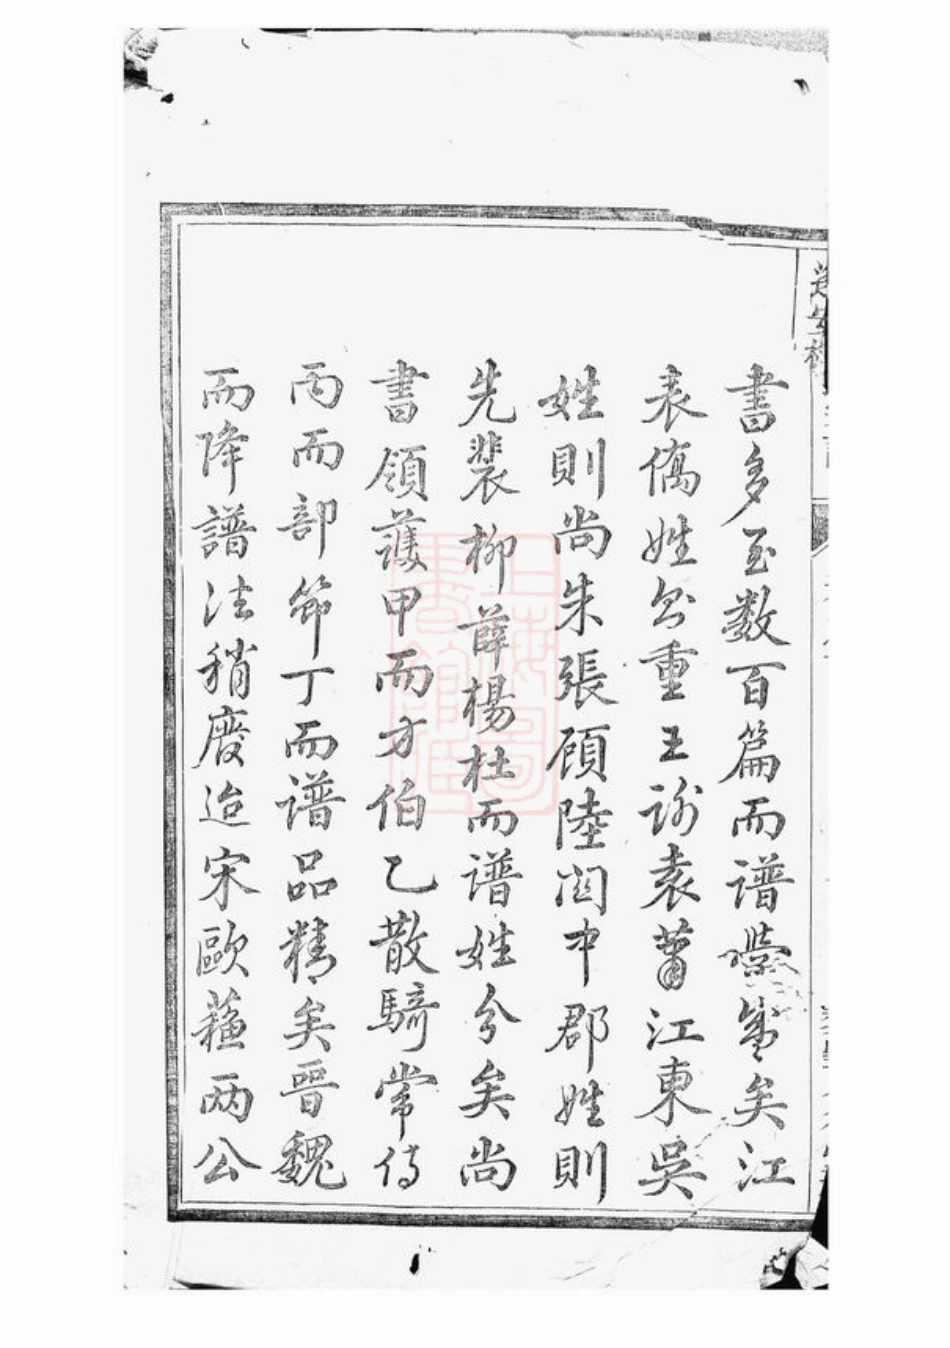 書多至数百篇而谱矣江
表僑姓重王谢袁萧江東吳
姓則尚朱張顾陸関中郡姓則
先裴柳薛楊杜而谱姓分矣尚
書領護甲而方伯乙散騎常侍
丙而部節丁而谱品精矣晉魏
而降譜法稍廢迨宋歐蘓两公